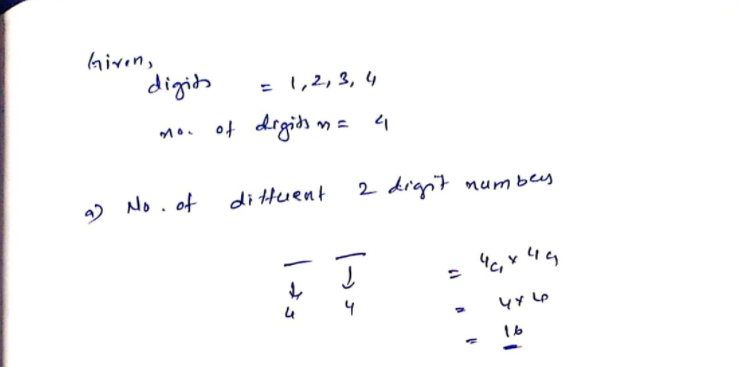 Given,
digits = 1, 2, 3, 4
no. of digits n = 4
a) No. of different 2 digit numbers
_ _ = 4C₁ × 4C₁
↓ ↓
4 4 = 4 × 4
= 16